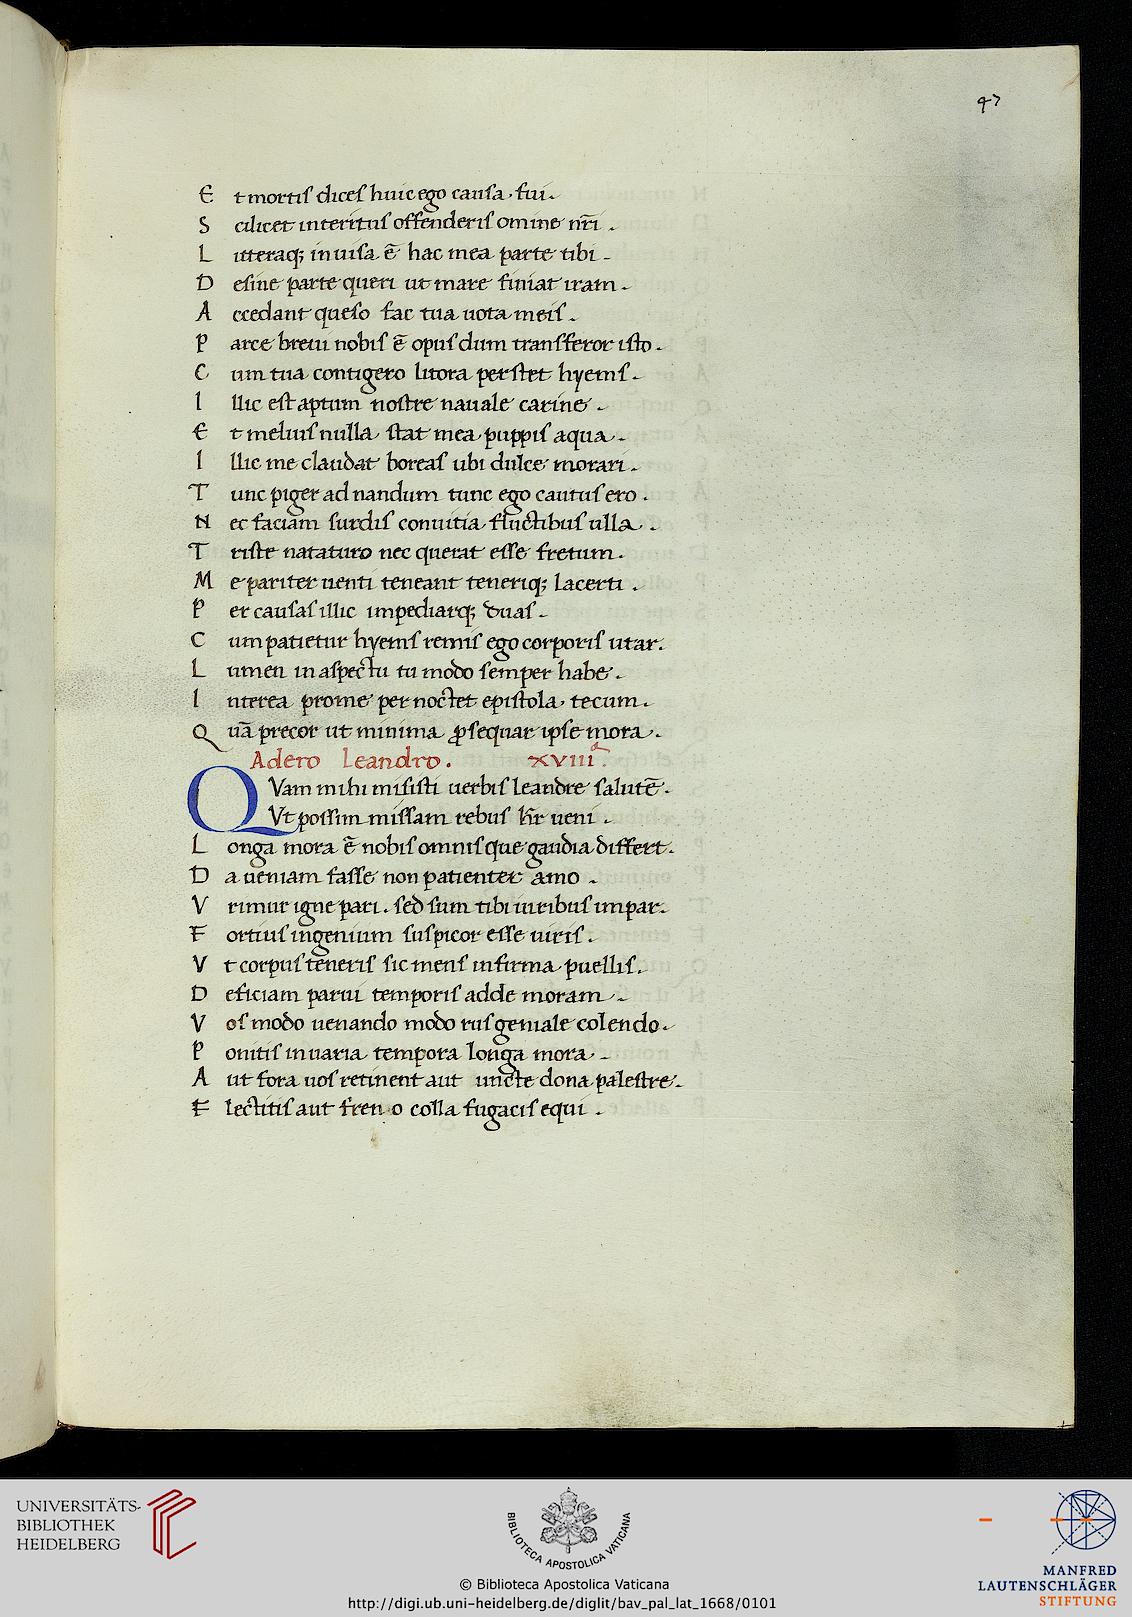 97
E t mortis dices huic ego causa fui.
S cilicet interitus offenderis omine nr̄i.
L itteraq; inuisa ē hac mea parte tibi.
D esine parte queri ut mare finiat iram.
A ccedant queso fac tua uota meis.
P arce breui nobis ē opus dum transferor isto.
C um tua contigero litora perstet hyems.
I llic est aptum nostre nauale carine.
E t melius nulla stat mea puppis aqua.
I llic me claudat boreas ubi dulce morari.
T unc piger ad nandum tunc ego cautus ero.
N ec faciam surdis conuitia fluctibus ulla.
T riste nataturo nec querat esse fretum.
M e pariter uenti teneant teneriq; lacerti.
P er causas illic impediarq; duas.
C um patietur hyems remis ego corporis utar.
L umen in aspectu tu modo semper habe.
I nterea prome per noctet epistola tecum.
Q uā precor ut minima ꝓsequar ipse mora.
Adero Leandro. xviiiª.
QVam mihi misisti uerbis leandre salutē.
Vt possim missam rebus hr ueni.
L onga mora ē nobis omnis que gaudia differt.
D a ueniam fasse non patienter amo.
V rimur igne pari. sed sum tibi uiribus impar.
F ortius ingenium suspicor esse uiris.
V t corpus teneris sic mens infirma puellis.
D eficiam parui temporis adde moram.
V os modo uenando modo rus geniale colendo.
P onitis in uaria tempora longa mora.
A ut fora uos retinent aut uncte dona palestre.
F lectitis aut freno colla fugacis equi.
UNIVERSITÄTS-
BIBLIOTHEK
HEIDELBERG
BIBLIOTECA APOSTOLICA VATICANA
MANFRED
LAUTENSCHLÄGER
STIFTUNG
© Biblioteca Apostolica Vaticana
http://digi.ub.uni-heidelberg.de/diglit/bav_pal_lat_1668/0101